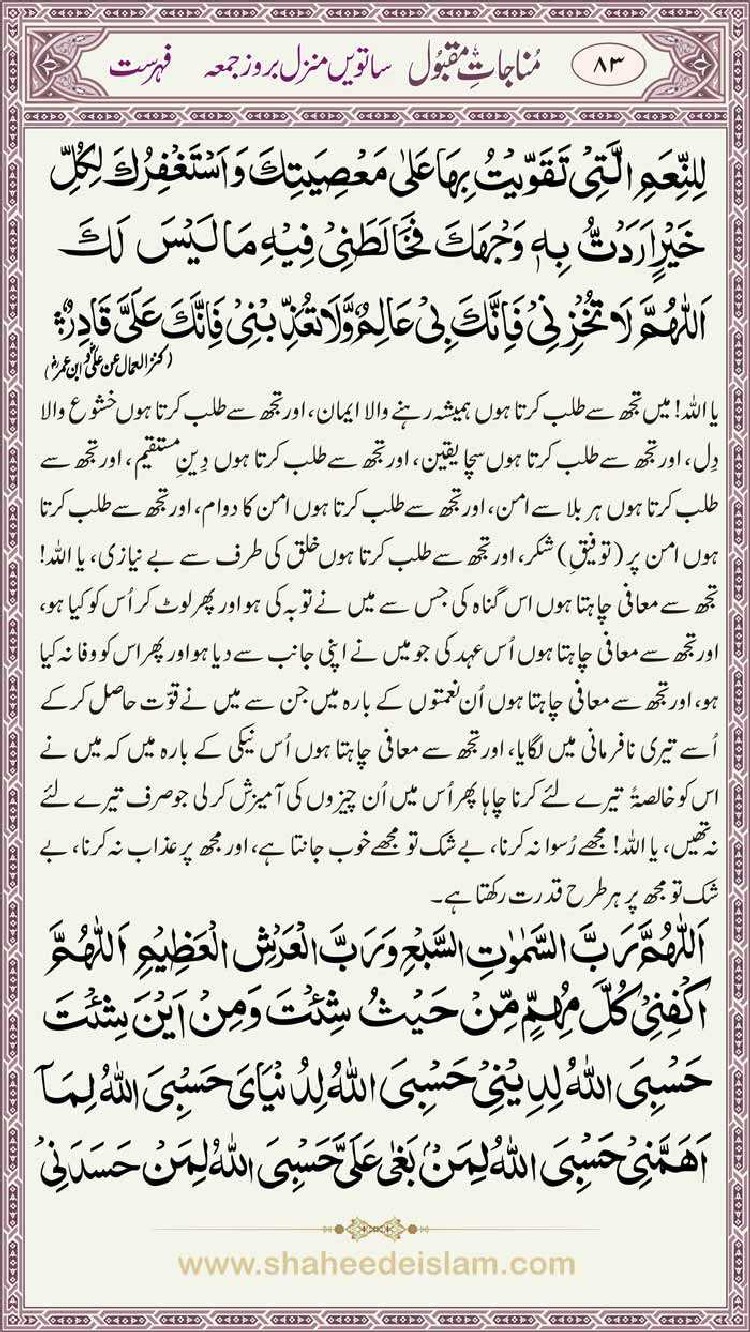 ۸۳ مُناجاتِ مقبُول ساتویں منزل بروز جمعہ فہرست
لِلنِّعَمِ الَّتِیْ تَقَوَّیْتُ بِهَا عَلٰی مَعْصِیَتِكَ وَ اَسْتَغْفِرُكَ لِكُلِّ
خَیْرٍ اَرَدْتُّ بِهٖ وَجْهَكَ فَخَالَطَنِیْ فِیْهِ مَا لَیْسَ لَكَ
اَللّٰهُمَّ لَا تُخْزِنِیْ فَاِنَّكَ بِیْ عَالِمٌ وَّلَا تُعَذِّبْنِیْ فَاِنَّكَ عَلَیَّ قَادِرٌ
(کنز العمال عن علیؓ و ابن عمرؓ)
یا اللہ! میں تجھ سے طلب کرتا ہوں ہمیشہ رہنے والا ایمان، اور تجھ سے طلب کرتا ہوں خشوع والا
دِل، اور تجھ سے طلب کرتا ہوں سچا یقین، اور تجھ سے طلب کرتا ہوں دِینِ مستقیم، اور تجھ سے
طلب کرتا ہوں ہر بلا سے امن، اور تجھ سے طلب کرتا ہوں امن کا دوام، اور تجھ سے طلب کرتا
ہوں امن پر (توفیقِ) شکر، اور تجھ سے طلب کرتا ہوں خلق کی طرف سے بے نیازی، یا اللہ!
تجھ سے معافی چاہتا ہوں اس گناہ کی جس سے میں نے توبہ کی ہو اور پھر لوٹ کر اُس کو کیا ہو،
اور تجھ سے معافی چاہتا ہوں اُس عہد کی جو میں نے اپنی جانب سے دیا ہو اور پھر اس کو وفا نہ کیا
ہو، اور تجھ سے معافی چاہتا ہوں اُن نعمتوں کے بارہ میں جن سے میں نے قوّت حاصل کر کے
اُسے تیری نافرمانی میں لگایا، اور تجھ سے معافی چاہتا ہوں اُس نیکی کے بارہ میں کہ میں نے
اس کو خالصۃً تیرے لئے کرنا چاہا پھر اُس میں اُن چیزوں کی آمیزش کر لی جو صرف تیرے لئے
نہ تھیں، یا اللہ! مجھے رُسوا نہ کرنا، بے شک تو مجھے خوب جانتا ہے، اور مجھ پر عذاب نہ کرنا، بے
شک تو مجھ پر ہر طرح قدرت رکھتا ہے۔
اَللّٰهُمَّ رَبَّ السَّمٰوٰتِ السَّبْعِ وَرَبَّ الْعَرْشِ الْعَظِیْمِ اَللّٰهُمَّ
اكْفِنِیْ كُلَّ مُهِمٍّ مِّنْ حَیْثُ شِئْتَ وَمِنْ اَیْنَ شِئْتَ
حَسْبِیَ اللّٰهُ لِدِیْنِیْ حَسْبِیَ اللّٰهُ لِدُنْیَایَ حَسْبِیَ اللّٰهُ لِمَآ
اَهَمَّنِیْ حَسْبِیَ اللّٰهُ لِمَنْۢ بَغٰی عَلَیَّ حَسْبِیَ اللّٰهُ لِمَنْ حَسَدَنِیْ
www.shaheedeislam.com